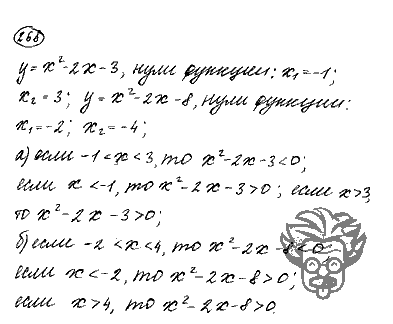 268
y = x² - 2x - 3, нули функции: x₁ = -1;
x₂ = 3; y = x² - 2x - 8, нули функции:
x₁ = -2; x₂ = -4;
а) если -1 < x < 3, то x² - 2x - 3 < 0;
если x < -1, то x² - 2x - 3 > 0; если x > 3,
то x² - 2x - 3 > 0;
б) если -2 < x < 4, то x² - 2x - 8 < 0;
если x < -2, то x² - 2x - 8 > 0;
если x > 4, то x² - 2x - 8 > 0.